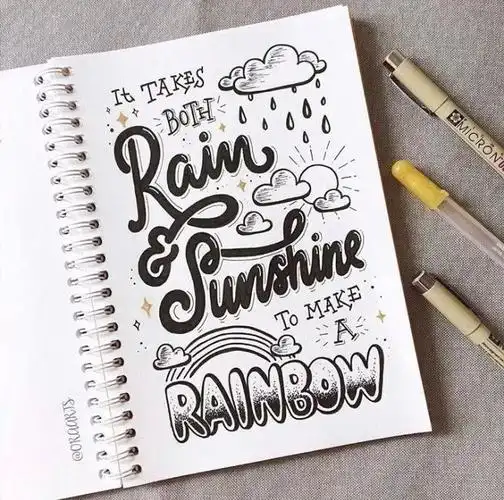 It TAKES
BOTH
Rain
& Sunshine
To MAKE
A
RAINBOW
@ORAARTS
MICRON